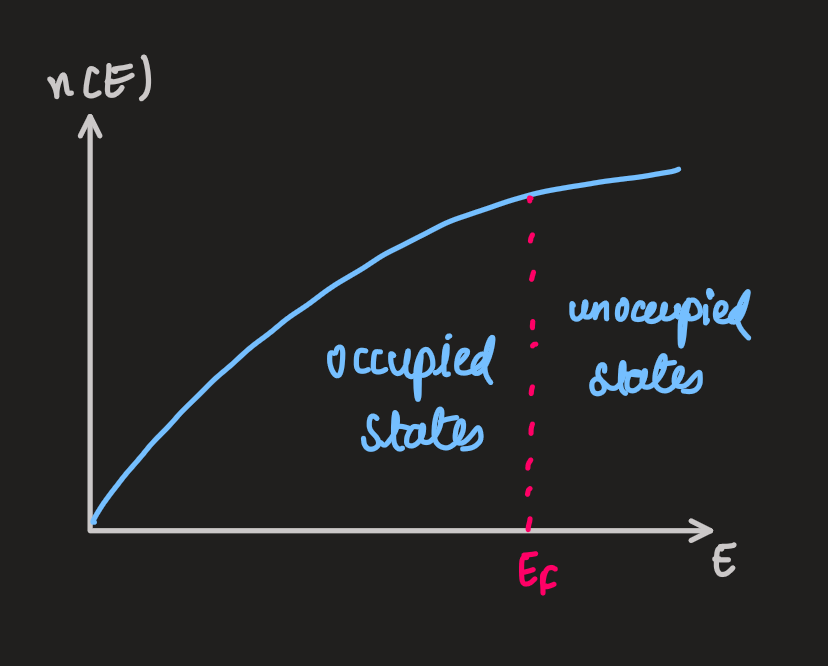 n(E)
occupied
states
unoccupied
states
E
EF